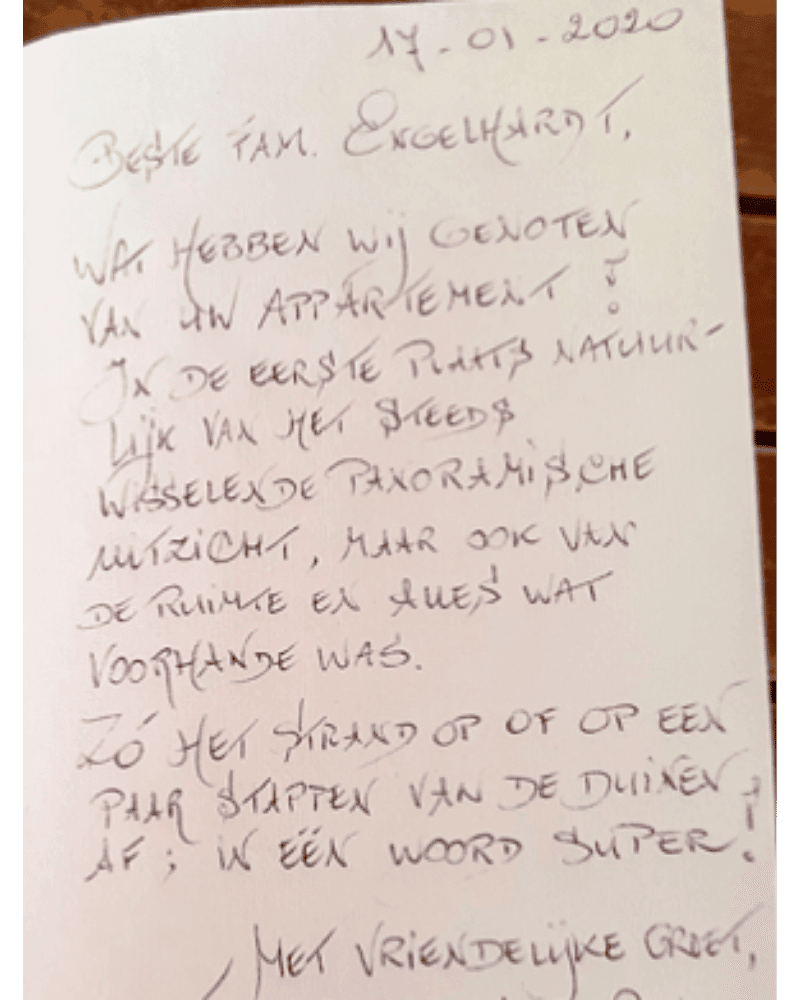 17-01-2020
BESTE FAM. ENGELHARDT,
WAT HEBBEN WIJ GENOTEN
VAN UW APPARTEMENT!
IN DE EERSTE PLAATS NATUUR-
LIJK VAN HET STEEDS
WISSELENDE PANORAMISCHE
UITZICHT, MAAR OOK VAN
DE RUIMTE EN ALLES WAT
VOORHANDE WAS.
ZÓ HET STRAND OP OF OP EEN
PAAR STAPPEN VAN DE DUINEN
AF; IN EÉN WOORD SUPER!
MET VRIENDELIJKE GROET,